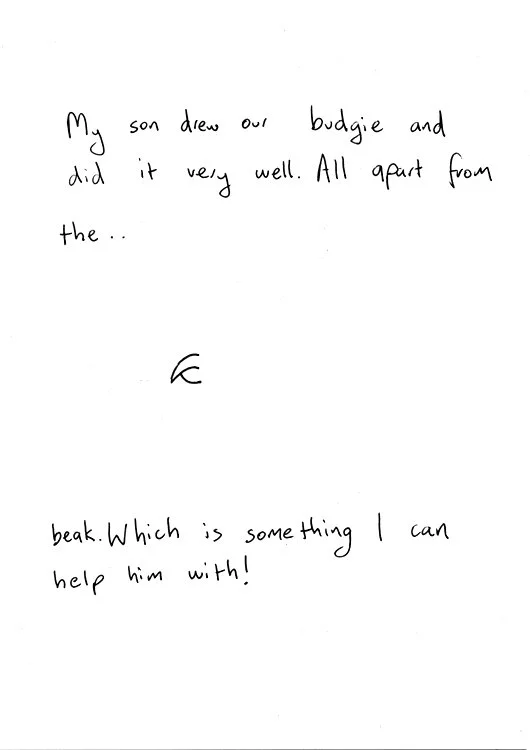 My son drew our budgie and
did it very well. All apart from
the..
beak. Which is something I can
help him with!